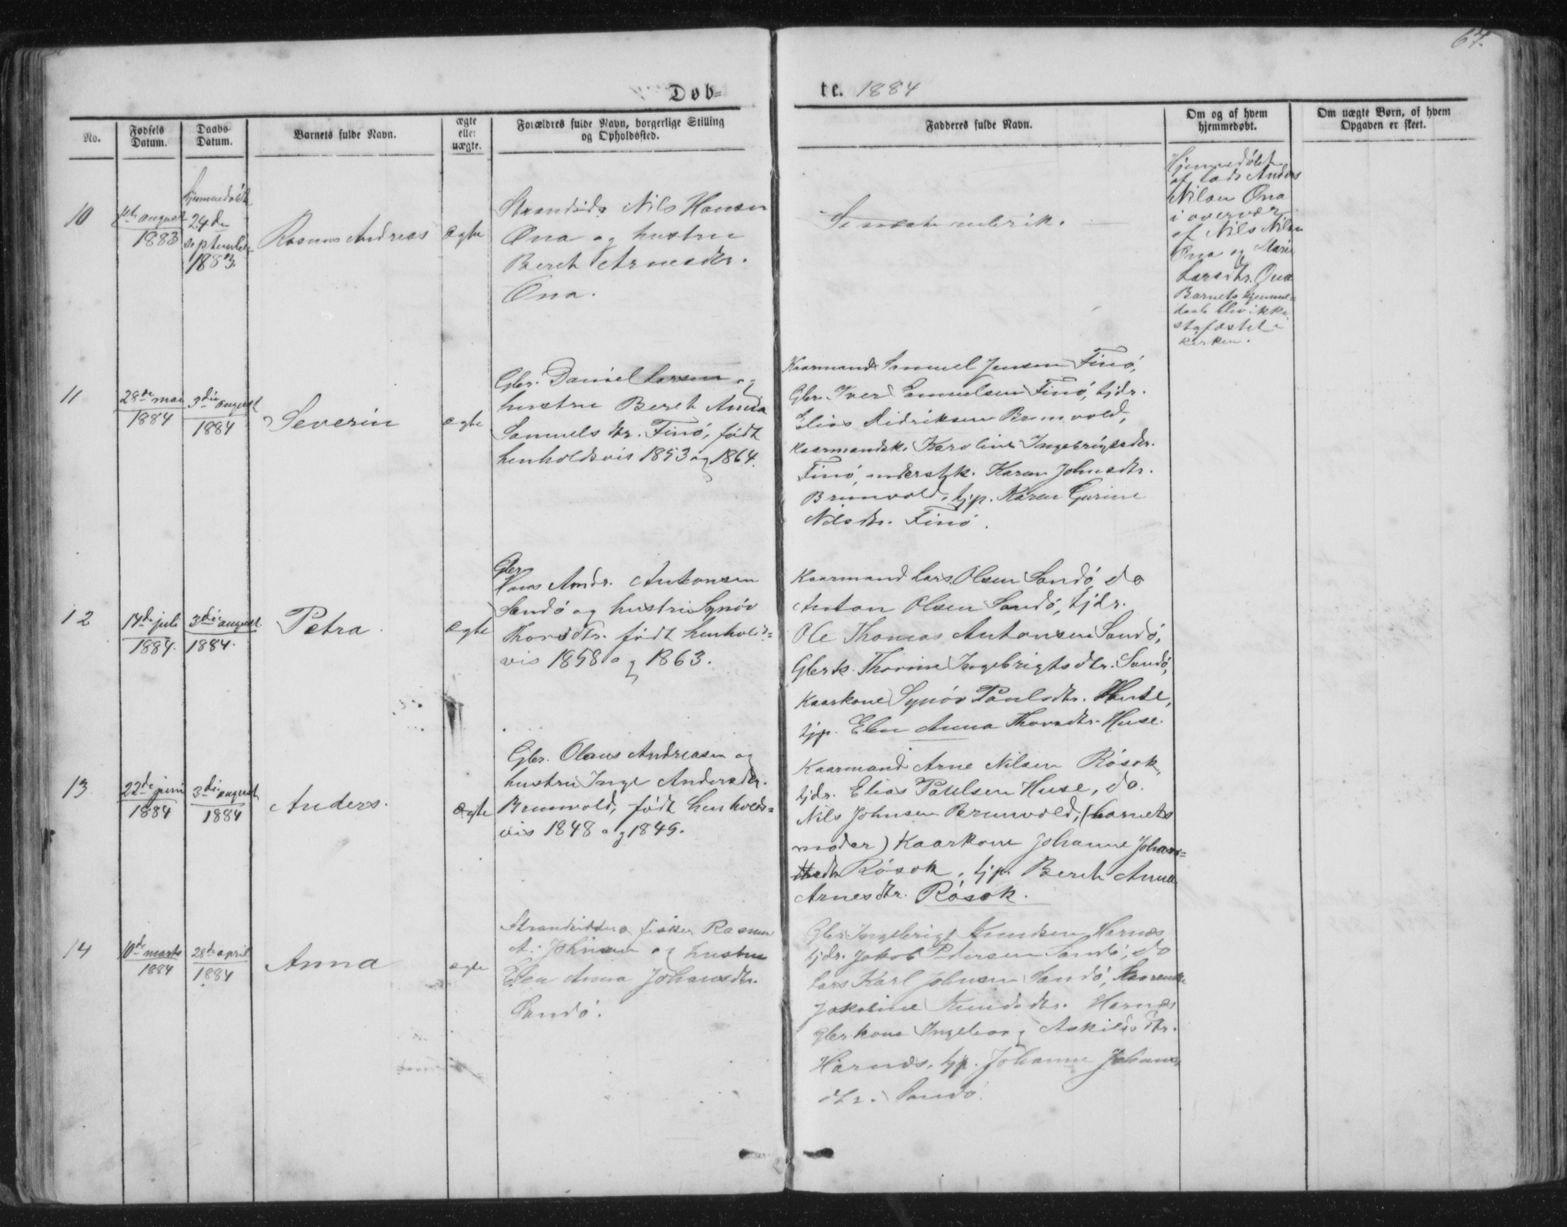 67.
Døb=
te. 1884
No.
Fødsels Datum.
Daabs Datum.
Barnets fulde Navn.
ægte eller uægte.
Forældres fulde Navn, borgerlige Stilling
og Opholdssted.
Fadderes fulde Navn.
Om og af hvem
hjemmedøbt.
Om uægte Børn, af hvem
Opgaven er skeet.
10
august
1883
hjemmedøbt
24de
september
1883.
Rasmus Andreas
ægte
Strandsid. Nils Hansen
Ona og hustru
Beret Arnesdtr.
Ona.
Se næste rubrik.
Hjemmedøbt
af Lods Anders
Nilsen Ona
i overvær
af Nils Nilsen
Ona og Marie
Larsdtr. Ona
Barnets hjemme=
daab blev ikke
stadfæstet i
kirken.
11
28de mai
1884
3die august
1884
Severin
ægte
Gbr. Daniel Larsen og
hustru Beret Anna
Samuelsdtr. Finø, født
henholdsvis 1853 og 1864.
Kaarmand Samuel Jensen Finø,
Gbr. Iver Emuelsen Finø, tjdr.
Elias Didriksen Brunvold,
kaarmandsk. Karoline Ingebrigtsdtr.
Finø, Karen Johnsdtr.
Brunvold, tjp. Karen Gurine
Nilsdtr. Finø.
12
17de juli
1884.
3die august
1884.
Petra.
ægte
Gbr.
Hans Andr. Antonsen
Sandø og hustru Synøv
Thorsdtr. født henholds=
vis 1858 og 1863.
Kaarmand Lars Olsen Sandø, do
Anton Olsen Sandø, tjdr.
Ole Thomas Antonsen Sandø,
Gbrk. Thorine Ingebrigtsdtr. Sandø,
Kaarkone Synøv Paulsdtr. Huse,
tjp. Elen Anna Thorsdtr. Huse.
13
22de juni
1884
3die august
1884
Anders.
ægte
Gbr. Olaus Andreasen og
hustru Inge Andersdtr.
Brunvold, født henholds=
vis 1848 og 1845.
Kaarmand Arne Nilsen Røsok,
tjdr. Elias Paulsen Huse, do.
Nils Johnsen Brunvold, (barnets
moder) Kaarkone Johanne Johans=
dtr. Røsok, tjp. Beret Anna
Arnesdtr. Røsok.
14
10de marts
1884
28de april
1884
Anna
ægte
Strandsidder og fisker Rasmus
A. Johnsen og hustru
Elen Anna Johansdtr.
Sandø.
Gbr. Ingebrigt Knudsen Harnæs
tjdr. Jakob Petersen Sandø, do
Lars Karl Johnsen Sandø,
Jakobine Knudsdtr. Harnæs
gbrkone Ingeborg Askilsdtr.
Harnæs, tjp. Johanne Johannes
dtr. Sandø.